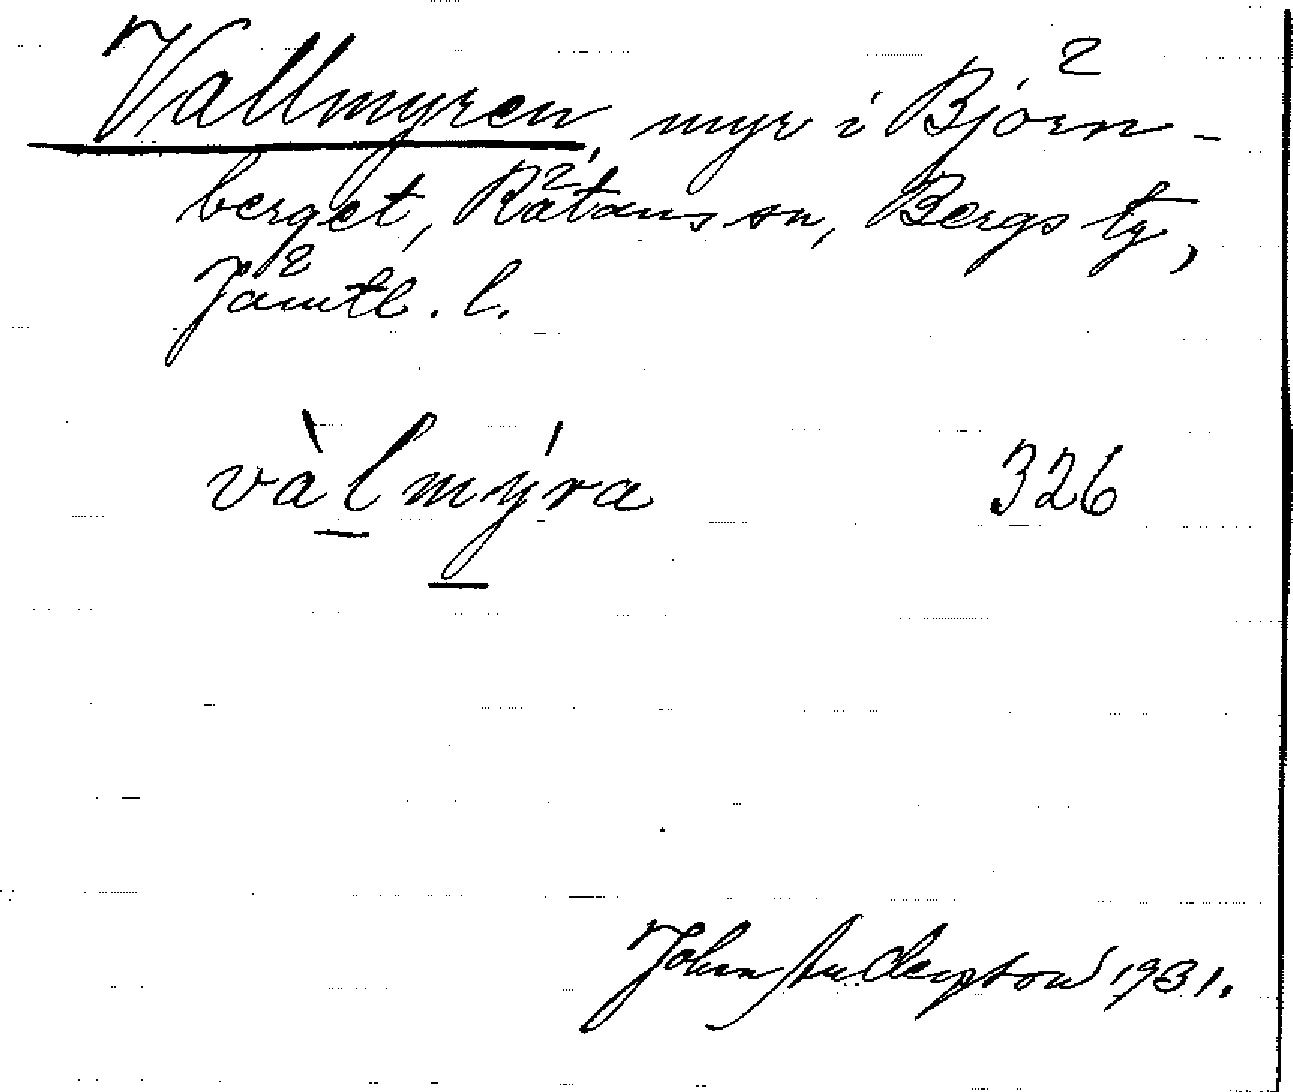 Vallmyren, myr i Björn-
berget, Rätans sn, Bergs tg,
Jämtl. l.
vàlmýra 326
John Anderson 1931.